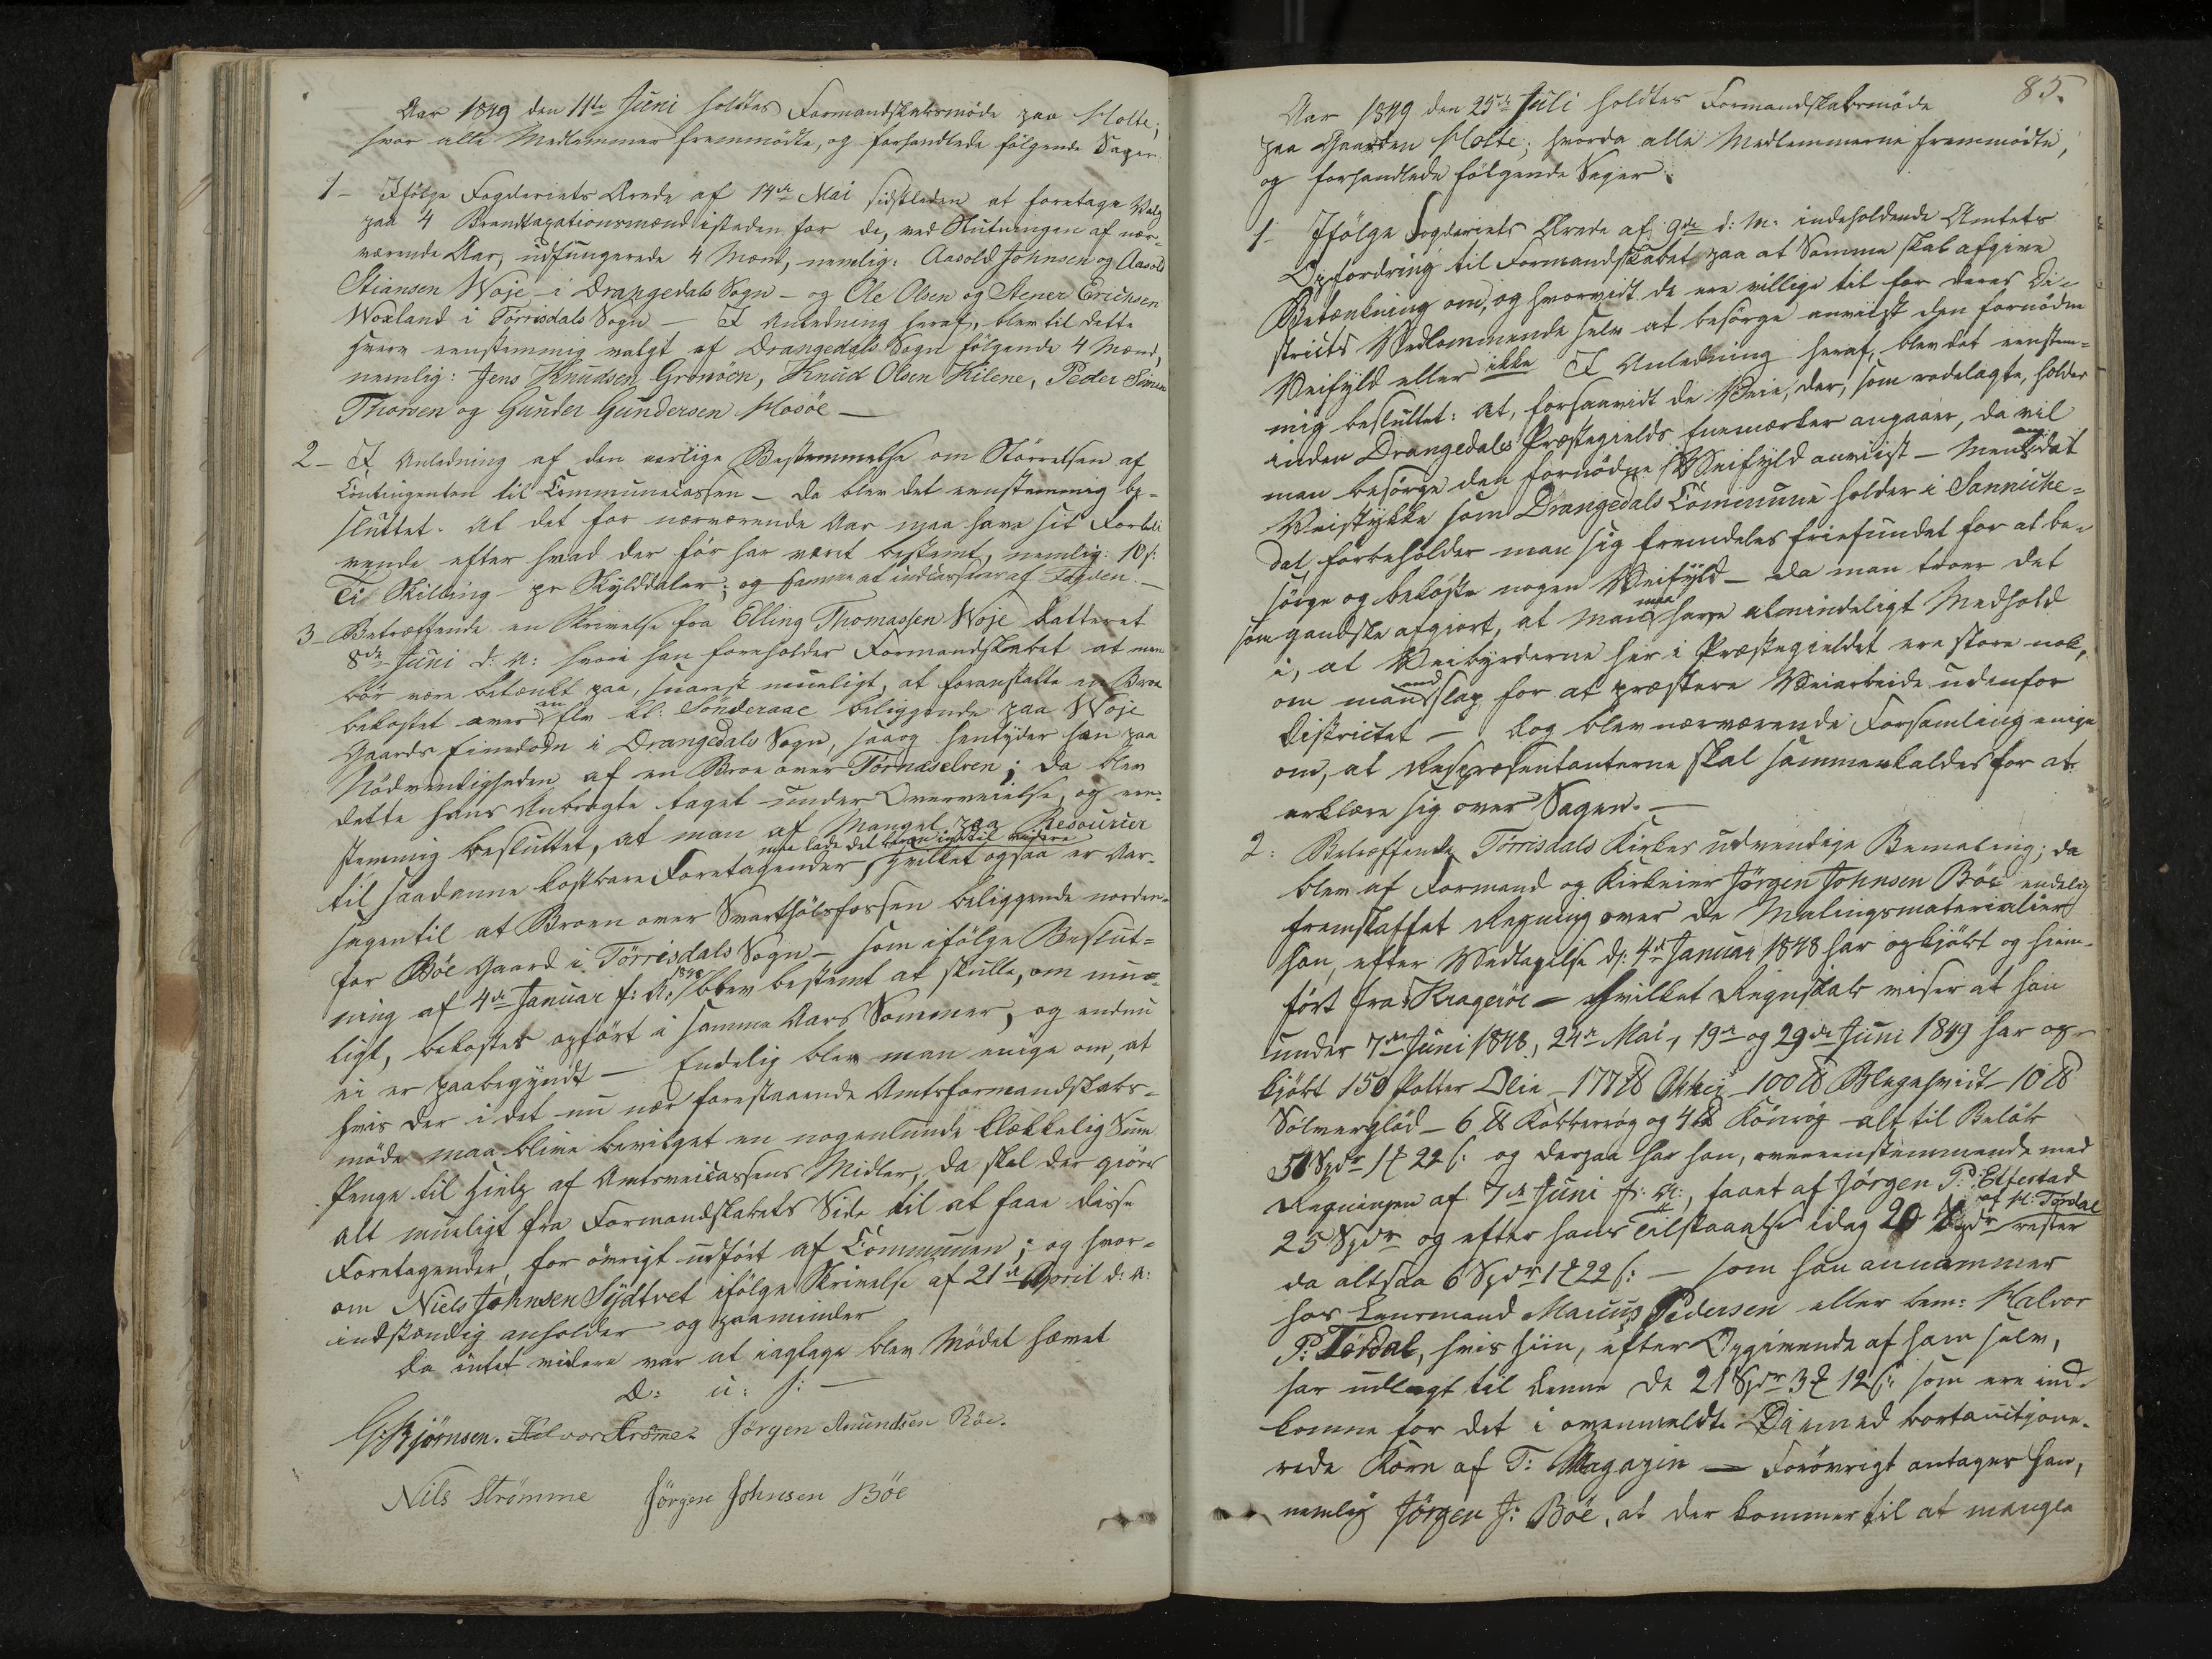 Aar 1849 den 11te Juni holdtes Formandskabsmöde paa Holte;
hvor alle Medlemmer fremmödte, og forhandlede følgende Sager.
1 - Ifölge Fogderiets Ordre af 14de Mai sidstleden at foretage Valg
paa 4 Brandtaxationsmænd isteden for de, ved Slutningen af nær-
værende Aar, udfungerede 4 Mænd, nemlig: Aasold Johnsen og Aasold
Stiansen Woje i Drangedals Sogn - og Ole Olsen og Stener Erichsen
Woxland i Törrisdals Sogn - I Anledning heraf, blev til dette
Hverv eenstemmig valgt af Drangedals Sogn følgende 4 Mænd,
nemlig: Jens Knudsen Gronoen, Knud Olsen Kilene, Peder Simen
Thorsen og Gunder Gundersen Mosöe -
2 - I Anledning af den aarlige Bestemmelse om Störrelsen af
Contingenten til Communecassen - da blev det eenstemmig be-
sluttet. At det for nærværende Aar maa have sit Forbli
vende efter hvad der för har været bestemt, nemlig: 10 s:
Ti Skilling pr Skylddaler; og Samme at indcasseres af Fogden. -
3 - Betræffende en Skrivelse fra Elling Thomassen Woje datteret
8de Juni d: A: hvori han foreholder Formandskabet at man
bör være betænkt paa, snarest mueligt, at foranstalte en Broe
bekostet over en Elv kl: Sönderaae beliggende paa Woje
Gaards Eiendom i Drangedals Sogn, saaog hentyder han paa
Nödvendigheden af en Broe over Tornaselven; da blev
dette hans Andragte taget under Overveielse, og een-
stemmig besluttet, at man af Mangel paa Resourcer
maa lade det beroe indtil videre
til saadanne kostbare Foretagender, hvilket ogsaa er Aar-
sagen til at Broen over Svarthölsfossen beliggende norden-
for Böe Gaard i Törrisdals Sogn - som ifölge Beslut-
ning af 4de Januar f: A: 1848 blev bestemt at skulle, om mue-
ligt, bekostes opfört i samme Aars Sommer, og endnu
ei er paabegyndt - Endelig blev man enige om, at
hvis der i det nu nær forestaaende Amtsformandskabs-
möde maa blive bevilget en nogenlunde klækkelig Sum
Penge til Hielp af Amtsveicassens Midler, da skal der giöres
alt mueligt fra Formandskabets Side til at faae disse
Foretagender, for övrigt udfört af Communen; og hvor-
om Niels Johnsen Sydtvet ifölge Skrivelse af 21de April d: A:
indstændig anholder og paaminder
Da intet videre var at iagtage blev Mödet hævet
D: u: s: -
G. Björnsen. Halvor Strömme. Jörgen Anundsen Böe.
Nils Strömme Jörgen Johnsen Böe
85.
Aar 1849 den 25de Juli holdtes Formandskabsmöde
paa Gaarden Holte; hvorda alle Medlemmerne fremmödte,
og forhandlede följende Sager.
1 - Ifölge Fogderiets Ordre af 9de d: M: indeholdende Amtets
Opfordring til Formandskabet paa at Samme skal afgive
Betænkning om, og hvorvidt de ere villige til for deres Di-
stricts Vedkommende selv at besörge anviist den fornödne
Veifyld eller ikke I Anledning heraf, blev det eenstem-
mig besluttet: At, forsaavidt de Veie, der, som rodelagte, holdes
inden Drangedals Præstegields Enemærker angaaer, da vil
man besörge den fornödne Veifyld anviist - Men det
Veistykke som Drangedals Commune holder i Sanniche-
dal forbeholder man sig fremdeles friefundet for at be-
sörge og bekoste nogen Veifyld - da man troer det
som gandske afgiort, at Man maa have almindeligt Medhold
i, at Veibyrderne her i Præstegieldet ere store nok,
om man end slap for at præstere Veiarbeide udenfor
Districtet - Dog blev nærværende Forsamling enige
om, at Repræsentanterne skal sammenkaldes for at
erklære sig over Sagen. -
2: Betræffende Törrisdals Kirkes udvendige Bemaling; da
blev af Formand og Kirkeier Jörgen Johnsen Böe endelig
fremskaffet Regning over de Malingsmaterialier
han, efter Vedtagelse d: 4de Januar 1848 har opkjöbt og hiem-
fört fra Krageröe - Hvilket Regnskab viser at han
under 7de Juni 1848, 24de Mai, 19de og 29de Juni 1849 har op-
kjöbt 150 Potter Olie - 177 ℔ Okker - 100 ℔ Blyehvidt - 10 ℔
Sölverglöd - 6 ℔ Kobberrög og 4 ℔ Könrög - alt til Belöb
51 Spdr 1 ₰ 22 s: og derpaa har han, overeenstemmende med
Regningen af 7de Juni f: A:, faaet af Jörgen P: Eltestad
25 Spdr og efter hans Tilstaaelse idag 20 Spdr af H: Tördal rester
da altsaa 6 Spdr 1 ₰ 22 s: - som han annammer
hos Lensmand Marcus Pedersen eller bem: Halvor
P: Tördal, hvis hiin, efter Opgivende af ham selv,
har udlagt til denne de 21 Spdr 3 ₰ 12 s: som ere ind-
komne for det i ovenmeldte Öiemed bortauctione-
rede Korn af T: Magazin - Forövrigt antager han,
nemlig Jörgen J: Böe, at der kommer til at mangle